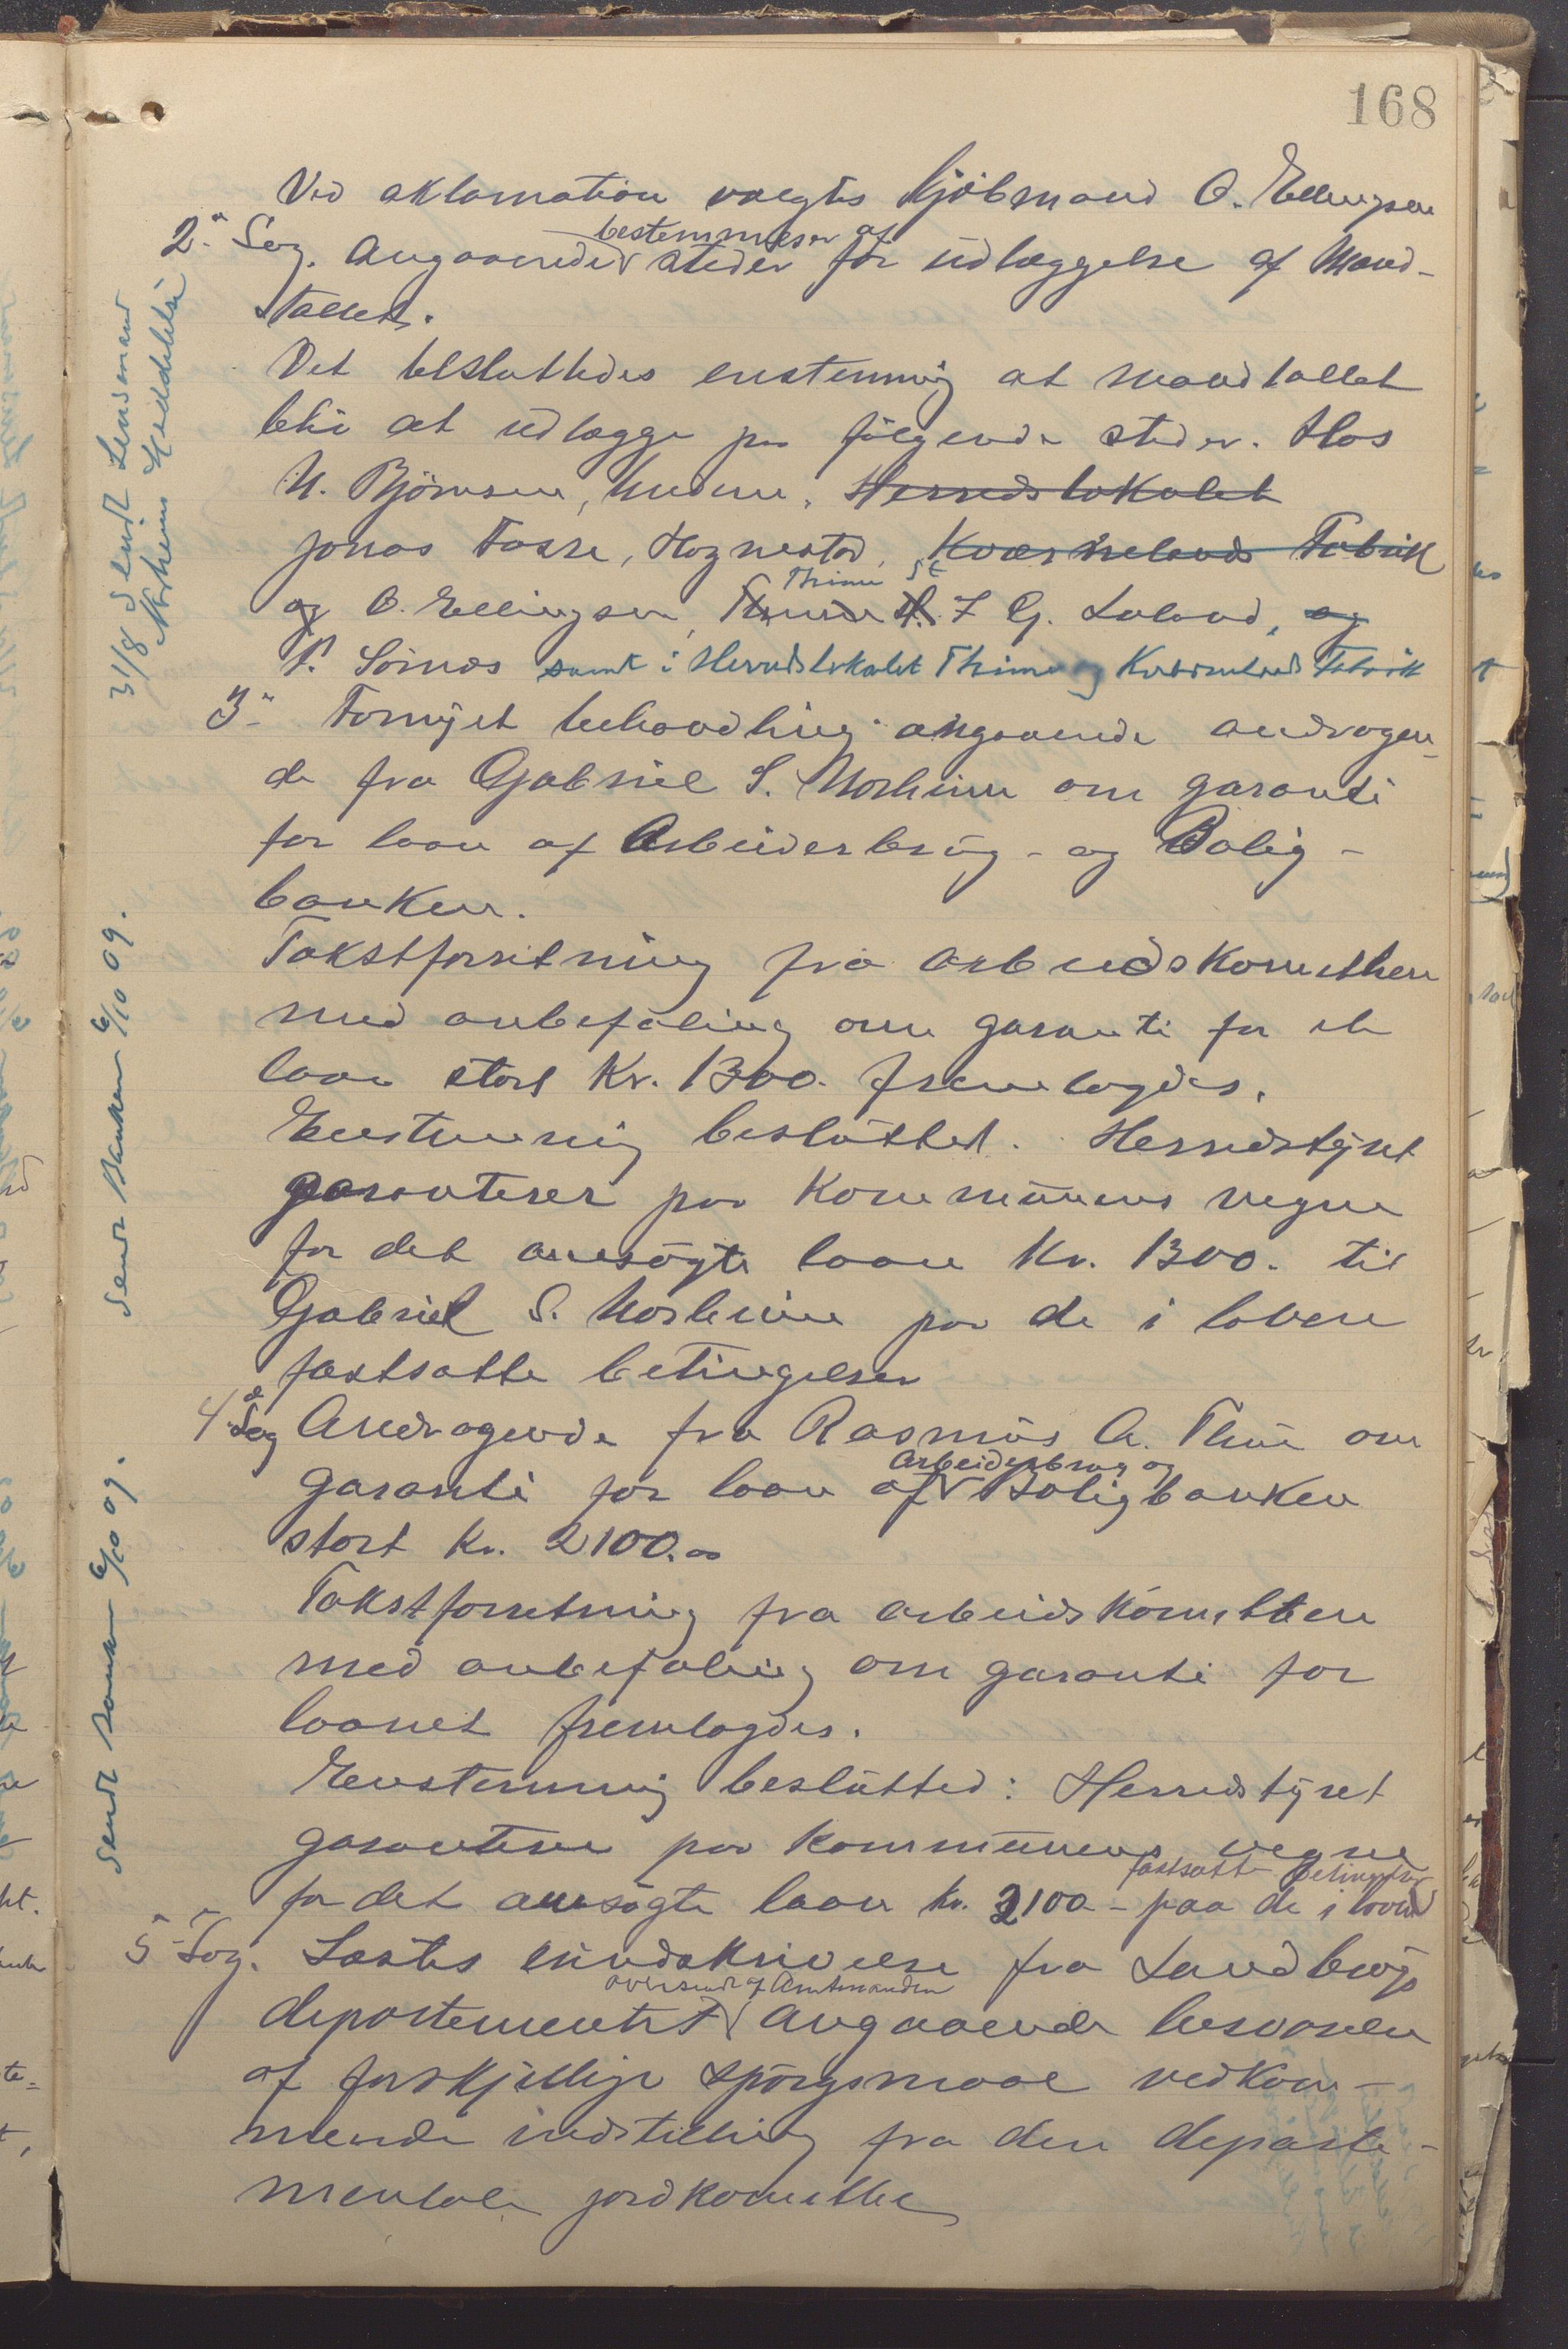 168
Ved aklamation valgtes Kjöbmand O. Ellingsen
2den Sag. Angaaende bestemmelser af steder for udlæggelse af Mand-
tallet.
Det besluttedes enstemmig at mandtallet
bli at udlægge paa fölgende steder. Hos
M. Björnsen, Undem, Herredslokalet
Jonas Fosse, Hognestad, Kværnelands Fabrik
og O. Ellingsen, Thime St. Thime St. I G. Laland, og
P. Sömes samt i Herredslokalet Thime og Kværnelands Fabrik
3- Fornyet behandling angaaende andragen-
de fra Gabriel S. Norheim om garanti
for laan af Arbeiderbrug- og Bolig-
banken.
Takstforretning fra arbeidskomitteen
med anbefaling om garanti for et
laan stort Kr. 1300. fremlagdes.
Enstemmig besluttet. Herredstyret
garanterer paa Kommunens vegne
for det ansögte laan Kr. 1300. til
Gabriel S. Norheim paa de i loven
fastsatte betingelser
4de Sag Andragende fra Rasmus A. Thu om
garanti for laan af Arbeiderbrug og Boligbanken
stort Kr. 2100.00
Takstforretning fra arbeidskomitteen
med anbefaling om garanti for
laanet fremlagdes.
Enstemmig besluttet: Herredstyret
garanterer paa Kommunens vegne
for det ansögte laan kr. 2100 - paa de i loven fastsatte betingelser
5- Sag. Læstes rundskrivelse fra Landbrugs
departementet oversendt af Amtmanden angaaende besvarelse
af forskjellige spörgsmaal vedkom-
mende indstilling fra den departe-
mentale jordkomitte
31/8 Sendt Lensmand
Norheim Meddelelse
Sendt Banken 6/10 09.
Sendt Banken 6/10 09.